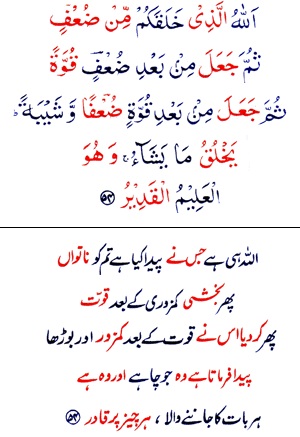 اَللّٰهُ الَّذِىْ خَلَقَكُمْ مِّنْ ضُعْفٍ
ثُمَّ جَعَلَ مِنْۢ بَعْدِ ضُعْفٍ قُوَّةً
ثُمَّ جَعَلَ مِنْۢ بَعْدِ قُوَّةٍ ضُعْفًا وَّ شَيْبَةً ؕ
يَخْلُقُ مَا يَشَآءُ ۚ وَ هُوَ
الْعَلِيْمُ الْقَدِيْرُ ﴿۵۴﴾
اللہ ہی ہے جس نے پیدا کیا ہے تم کو ناتواں
پھر بخشی کمزوری کے بعد قوّت
پھر کر دیا اس نے قوت کے بعد کمزور اور بوڑھا
پیدا فرماتا ہے وہ جو چاہے اور وہ ہے
ہر بات کا جاننے والا ، ہر چیز پر قادر ﴿۵۴﴾